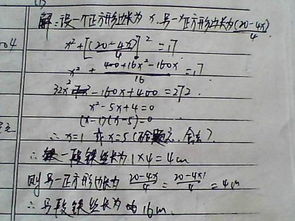 (1)
解:设一个正方形边长为 x,另一正方形边长为(20-4x)/4
x²+[(20-4x)/4]²=17
x²+(400+16x²-160x)/16=17
32x²-160x+400=272
x²-5x+4=0
(x-1)(x-5)=0
∴x=1 或x=5(
∴一段铁丝长为1×4=4cm
则另一正方形边长为(20-4x)/4=(20-4x1)/4=4cm
∴另一段铁丝长为16m.
004